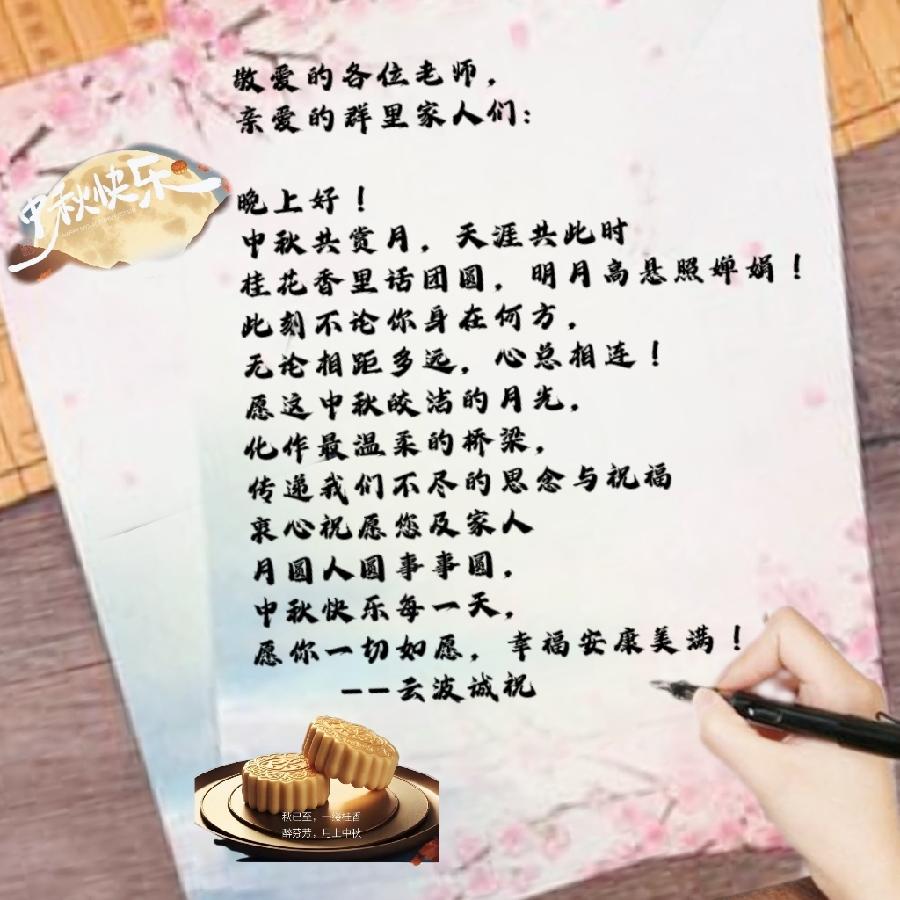 敬爱的各位老师，
亲爱的群里家人们：
中秋快乐
晚上好！
中秋共赏月，天涯共此时
桂花香里话团圆，明月高悬照婵娟！
此刻不论你身在何方，
无论相距多远，心总相连！
愿这中秋皎洁的月光，
化作最温柔的桥梁，
传递我们不尽的思念与祝福
衷心祝愿您及家人
月圆人圆事事圆。
中秋快乐每一天，
愿你一切如愿，幸福安康美满！
——云波诚祝
秋已至，一缕桂香
醉芬芳，月上中秋